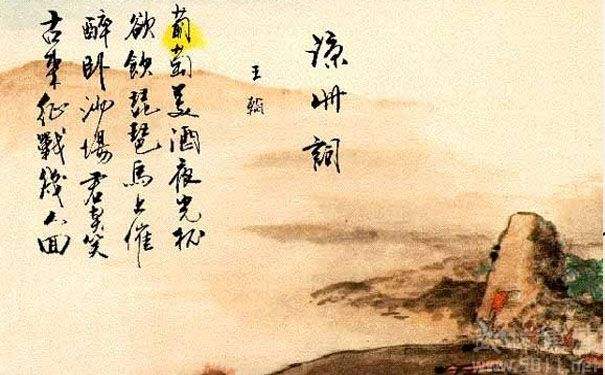 涼州詞
王翰
葡萄美酒夜光杯
欲飲琵琶馬上催
醉卧沙場君莫笑
古來征戰幾人囬
www.5011.net